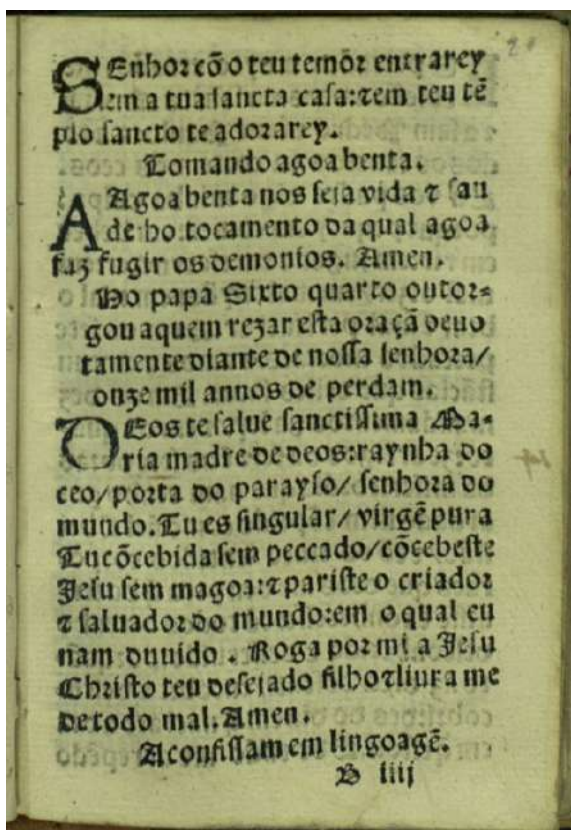 SEnhor cõ o teu temor entrarey
em a tua sancta casa: ⁊ em teu tẽ
plo sancto te adorarey.
Tomando agoa benta.
AAgoa benta nos seja vida ⁊ sau
de: ho tocamento da qual agoa
faz fugir os demonios. Amen.
Ho papa Sixto quarto outor-
gou aquem rezar esta oraçã deuo
tamente diante de nossa senhora/
onze mil annos de perdam.
DEos te salue sanctissima Ma-
ria madre de deos: raynha do
ceo/ porta do parayso/ senhora do
mundo. Tu es singular/ virgẽ pura
Tu cõcebida sem peccado/ cõcebeste
Jesu sem magoa: ⁊ pariste o criador
⁊ saluador do mundo: em o qual eu
nam duuido. Roga por mi a Jesu
Christo teu desejado filho ⁊ liura me
de todo mal. Amen.
A confissam em lingoagẽ.
B iiij